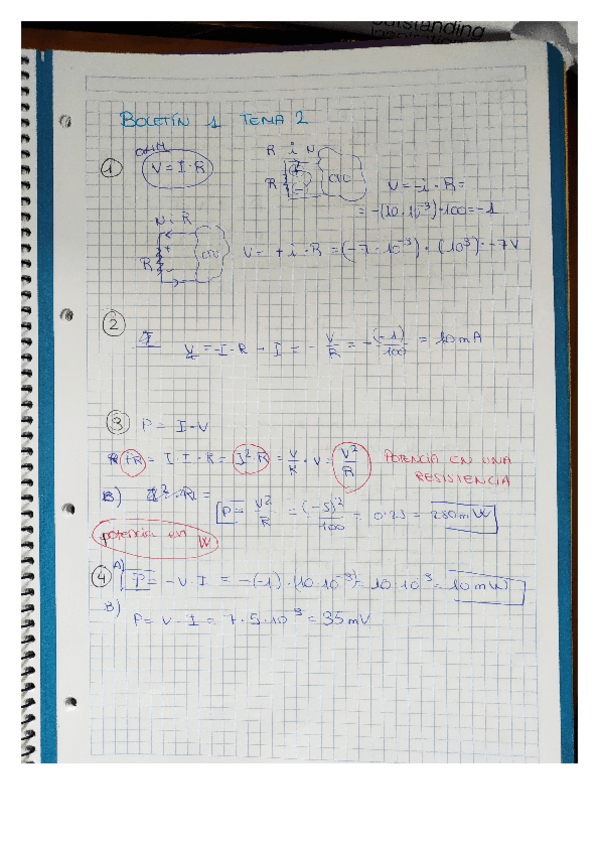 outstanding
BOLETÍN 1 TEMA 2
① OHM
V = I · R
R i V
R
CTO
V = -i · R =
= -(10·10⁻³)·100 = -1
V i R
R
+
-
CTO
V = +i · R = (-7·10⁻³) · (10³) = -7V
②
V = -I · R → I = - V/R = - (-1)/100 = 10mA
③ P = I · V
= I · I · R = I² · R = V/R · V = V²/R POTENCIA EN UNA RESISTENCIA
B) P = V²/R = (-5)²/100 = 0.25 = 250mW
potencia en W
④ A) P = -V · I = -(-1)·(10·10⁻³) = 10·10⁻³ = 10mW
B) P = V · I = 7·5·10⁻³ = 35mV